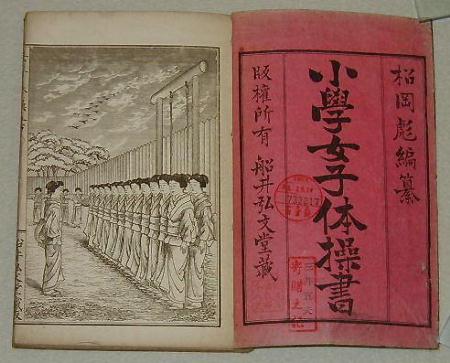 松岡彪編纂
小學女子体操書
版權所有 船井弘文堂蔵